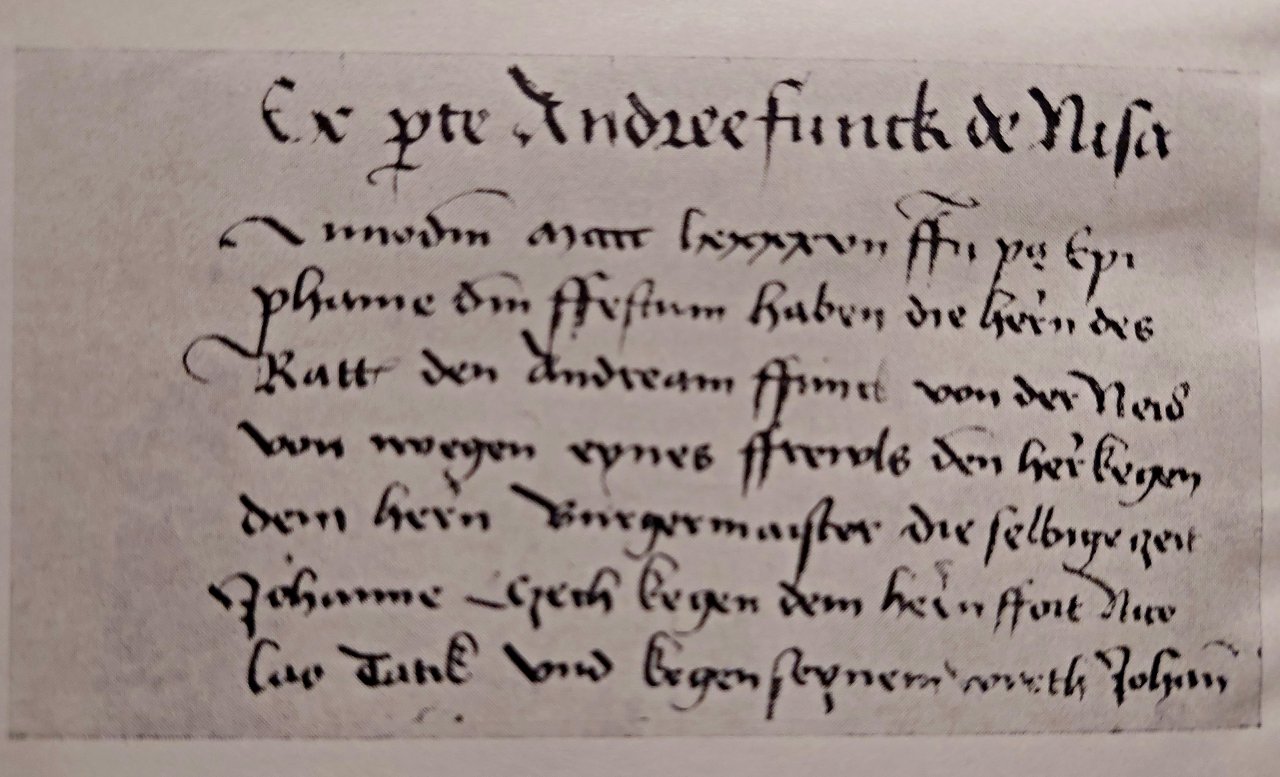 Ex pte Andree funck de Nisa
Annodm̄ Mcccc lxxxxvii ffr̄ii pq Epi
phanie dm̄ ffestum haben die her̄n des
Ratts den Andream ffunck von der Neis
von wegen eynes ffrewls den her kegen
dem her̄n Burgermaister die selbige zeit
Johanne Czech kegen dem her̄n ffoit Nico
lao Tauk vnd kegen seynem wirth Johan̄